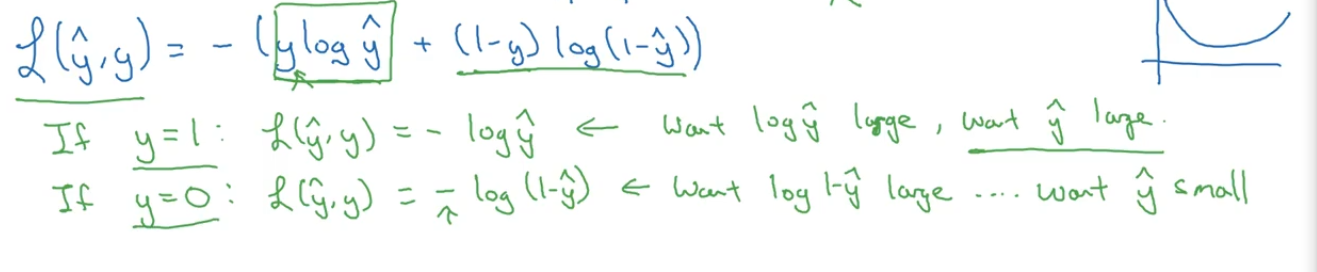 ℒ(ŷ,y) = - (y log ŷ + (1-y) log(1-ŷ))
If y=1: ℒ(ŷ,y) = - log ŷ ← Want log ŷ large, want ŷ large.
If y=0: ℒ(ŷ,y) = - log(1-ŷ) ← Want log 1-ŷ large .... want ŷ small